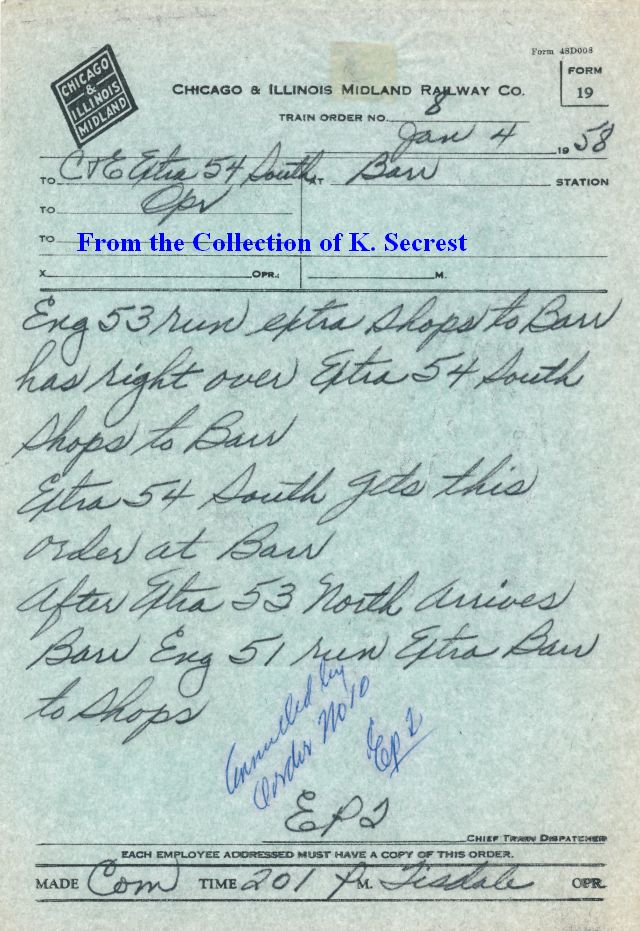 Form 48D008
CHICAGO
&
ILLINOIS
MIDLAND
FORM
19
CHICAGO & ILLINOIS MIDLAND RAILWAY CO.
TRAIN ORDER NO. 8
Jan 4 1958
TO C&E Extra 54 South AT Barr STATION
TO Opr
TO
From the Collection of K. Secrest
X OPR.: M.
Eng 53 run extra Shops to Barr
has right over Extra 54 South
Shops to Barr
Extra 54 South gets this
order at Barr
After Extra 53 North arrives
Barr Eng 51 run Extra Barr
to Shops
Annulled by
Order No 10
CHIEF TRAIN DISPATCHER
EACH EMPLOYEE ADDRESSED MUST HAVE A COPY OF THIS ORDER.
MADE Com TIME 201 P M. Tisdale OPR.